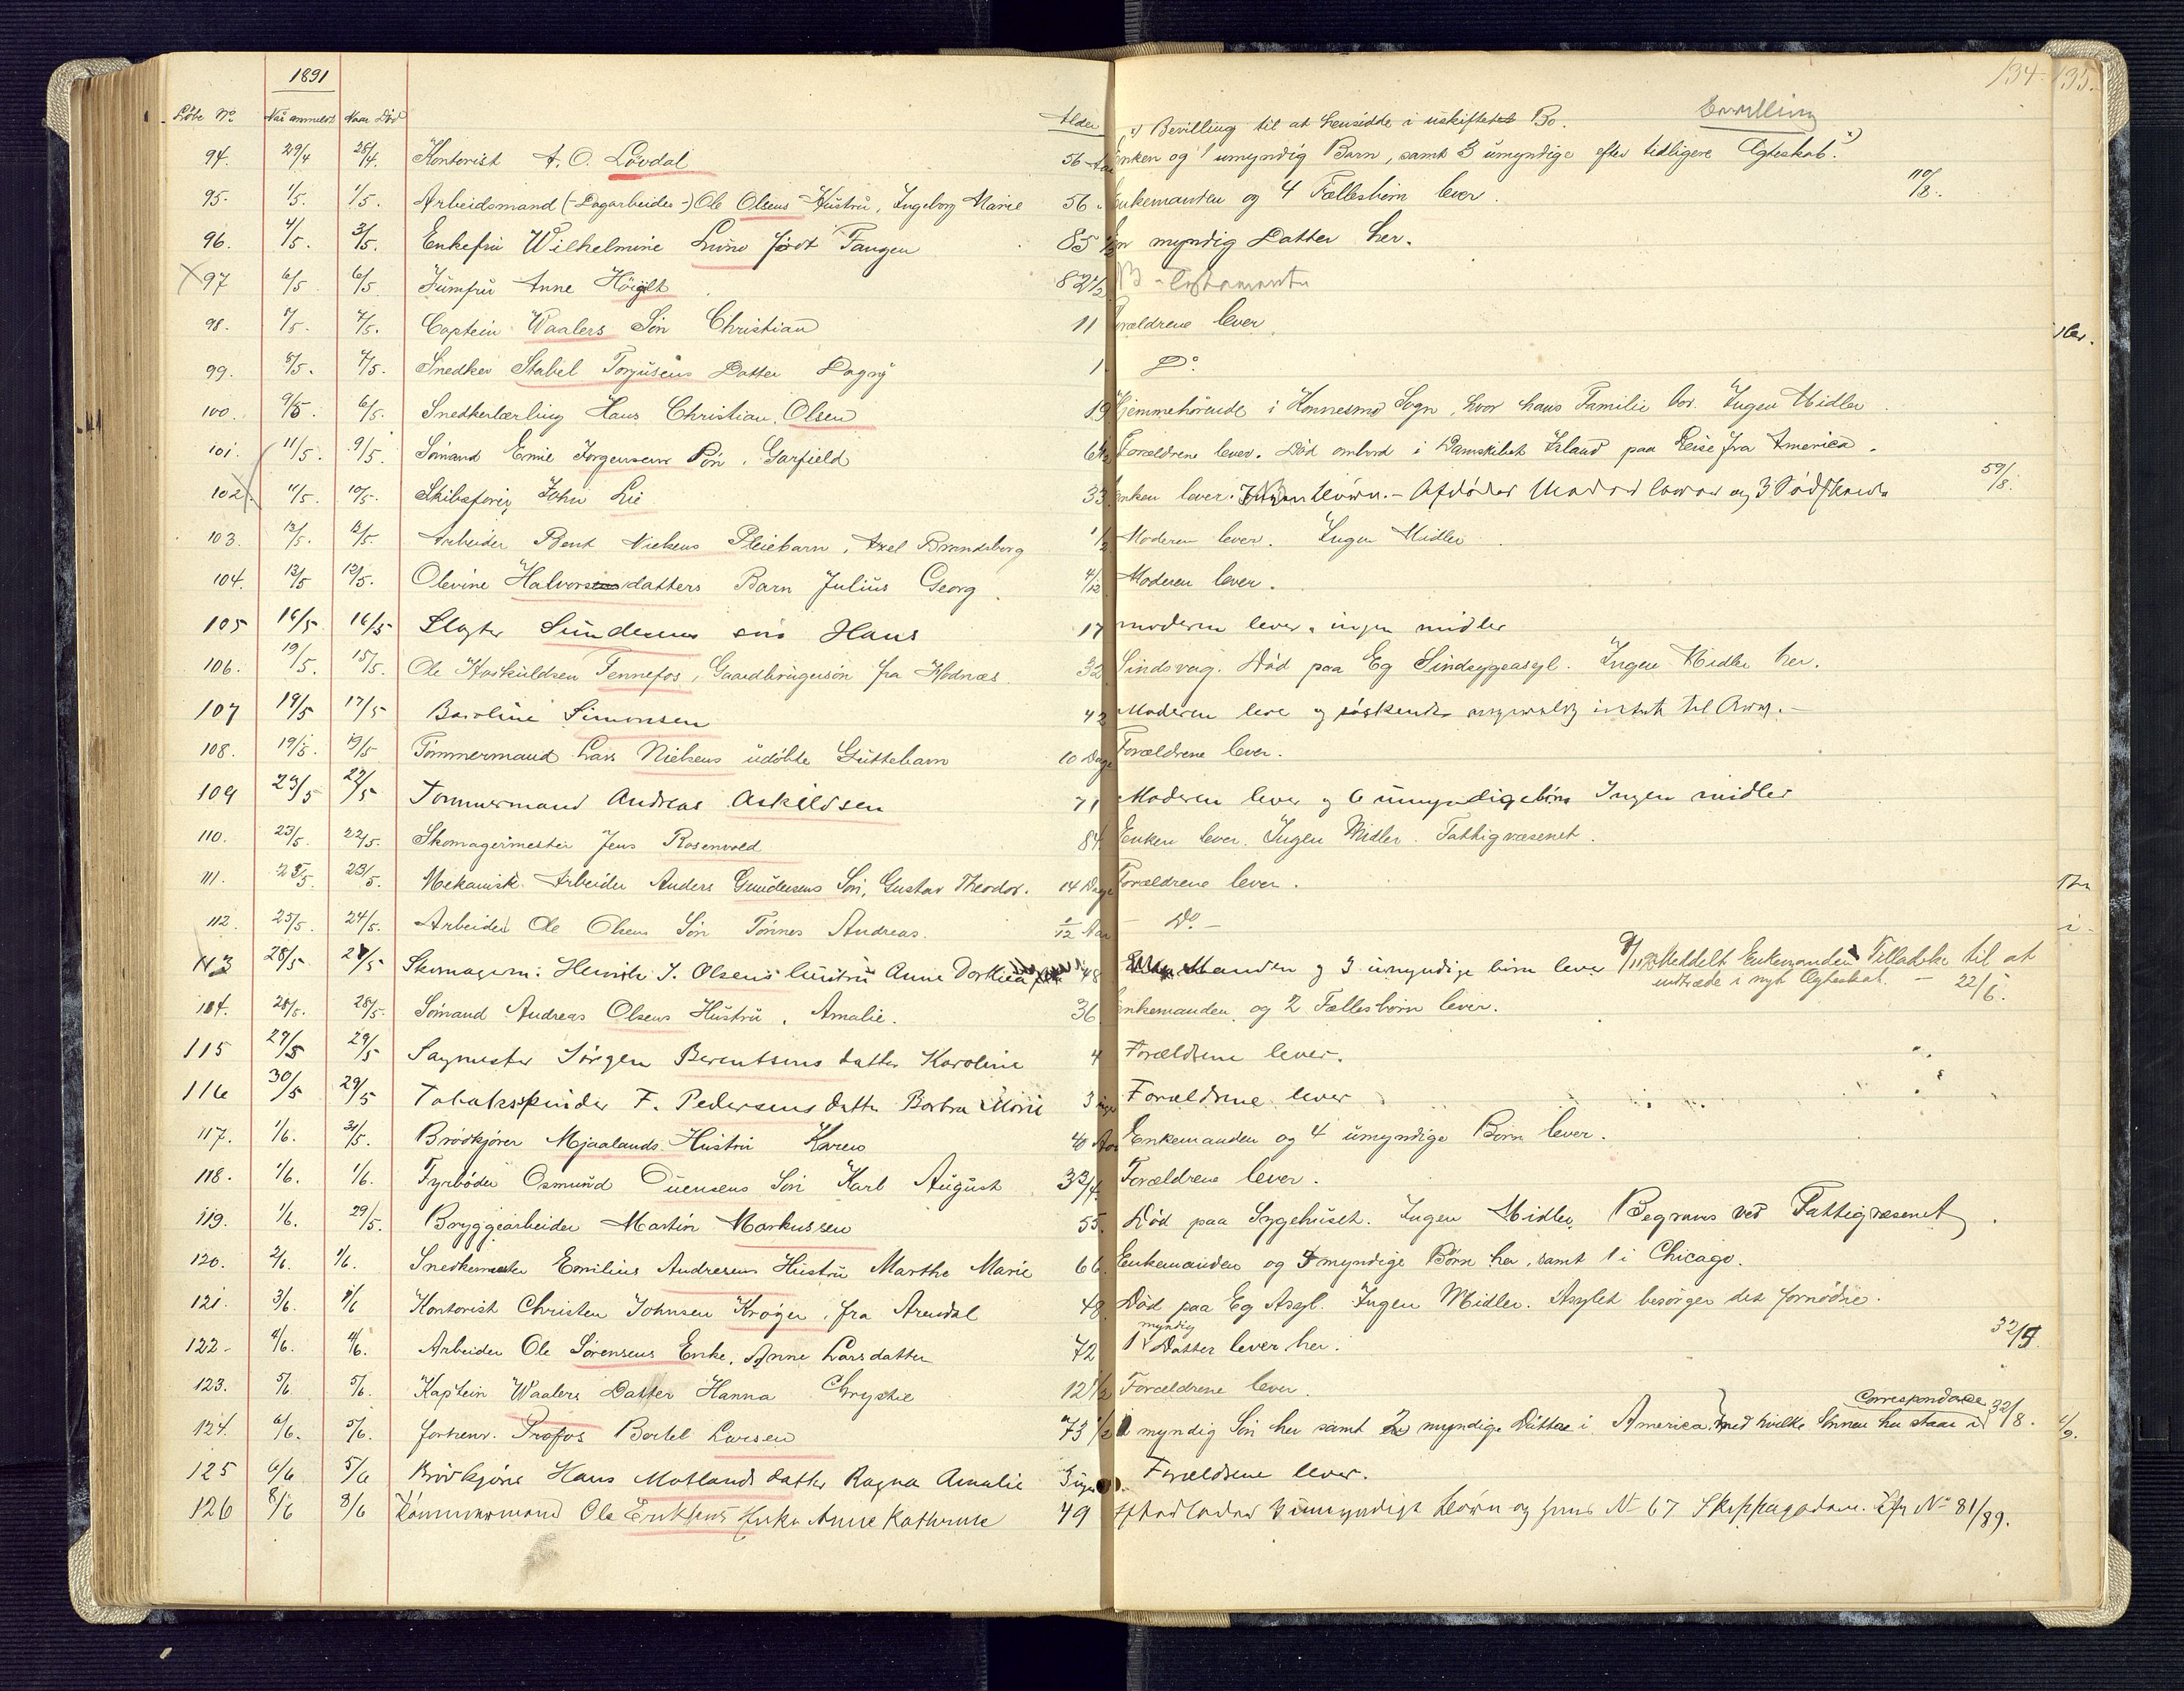 134-135.
1891
Løbe No. Naar anmeldt Naar Død Alder
x) Bevilling til at hensidde i uskiftet Bo. Bevilling
94. 29/4 28/4. Kontorist A. O. Løvdal 56 Aar Enken og 1 umyndig Barn, samt 3 umyndige efter tidligere Ægteskab. x)
95. 1/5. 1/5. Arbeidsmand (-Dagarbeider-) Ole Olsens Hustru, Ingeborg Marie 56. Enkemanden og 4 Fællesbørn lever. 110/8.
96. 4/5. 3/5. Enkefru Wilhelmine Lund født Fangen 85 1/2 En myndig Datter her.
97 6/5 6/5. Jumfru Anne 82 1/2 Testamente
98. 7/5. 7/5. Captein Waalers Søn Christian 11 Forældrene lever
99. 8/5. 7/5. Snedker Stabel Torjusens Datter Dagny 1 Do.
100. 9/5. 6/5. Snedkerlærling Hans Christian Olsen 19 Hjemmehørende i Konnesmo Sogn, hvor hans Familie bor. Ingen Midler.
101. 11/5. 9/5. Sømand Emil Jørgensens Søn, Garfield Forældrene lever. Død ombord i Damskibet Island paa Reise fra America.
102. 11/5. 10/5. Skibsfører John Lie 33. Enken lever. Ingen Børn. - Afdødes Moder lever og 3 Sødskende 59/8.
103. 13/5. 12/5. Arbeider Bent Nielsens Pleiebarn, Axel Brandsborg 1/2 Moderen lever. Ingen Midler.
104. 13/5 12/5. Olevine Halvorsdatters Barn Julius Georg. 4/12 Moderen lever.
105 16/5 16/5 Slagter Sundesens søn Hans 17 moderen lever, ingen midler
106. 19/5. 15/5. Ole Høskuldsen Tennefos, Gaardbrugersøn fra Hodnæs. 32 Sindsvag. Død paa Eg Sindsygeasyl. Ingen Midler her.
107 19/5 17/5 Baroline Simonsen 42 Moderen leve og søskende til Arv. -
108. 19/5. 19/5 Tømmermand Lars Nielsens udøbte Guttebarn 10 Dage Forældrene lever.
109 23/5 22/5 Tommermand Andreas Askildsen 71 Moderen lever og 6 umyndige børn Ingen midler
110. 23/5. 22/5. Skomagermester Jens Rosenvold 84. Enken lever. Ingen Midler. Fattigvæsenet.
111. 25/5. 23/5. Mekanisk Arbeider Anders Gundersens Søn, Gustav Theodor. 14 Dage Forældrene lever.
112. 25/5. 24/5. Arbeider Ole Olsens Søn Tønnes Andreas. Do. -
113 28/5 27/5 Skomagerm. Henrik J. Olsens hustru Anne Dorthea 48 Manden og 3 umyndige børn lever Meddelt Enkemanden Tilladelse til at
indtræde i nyt Ægteskab. - 22/6.
114. 28/5. 28/5. Sømand Andreas Olsens Hustru, Amalie. 36. Enkemanden og 2 Fællesbørn lever.
115 29/5 29/5 Sagmester Jørgen Berentsens datter Karoline 4 Forældrene lever.
116 30/5 29/5 Tobaksspinder F. Pedersens datter Barbra Marie 3 uger Forældrene lever
117. 1/6. 31/5. Brødkjører Mjaalands Hustru Karen 40 Aar Enkemanden og 4 umyndige Børn lever.
118. 1/6. 1/6. Fyrbøder Osmund Duensens Søn Karl August Forældrene lever.
119. 1/6. 29/5. Bryggearbeider Martin Markussen 55. Død paa Sygehuset. Ingen Midler. Begraves ved Fattigvæsenet.
120. 2/6. 1/6. Snedkermester Emilius Andresens Hustru Marthe Marie 66. Enkemanden og myndige Børn her, samt 1 i Chicago.
121. 3/6. 1/6 Kontorist Christen Johnsen Krøger, fra Arendal 48. Død paa Eg Asyl. Ingen Midler. Asylet besørger det fornødne.
122 4/6. 4/6. Arbeider Ole Sørensens Enke, Anne Larsdatter 72 1 myndig Datter lever her. 32/9.
123. 5/6 5/6. Kaptein Waalers Datter Hanna Chrystie 12 1/2 Forældrene lever.
124. 6/6. 5/6. forhenv. Profos Bertel Larsen 73 1/2 1 myndig Søn her samt 2 myndige Døttre i America, med hvilke Sønnen her staar i Correspondance 32/8.
125 6/6 5/6 Brødkjører Hans Motlands datter Ragna Amalie 3 uger Forældrene lever.
126 8/6 8/6 Tømmermand Ole Eriksens Enke Anne Kathrine 49 efterlader 3 umyndige Børn og hus No 67 Skippergaden. Cfr No 81/89.